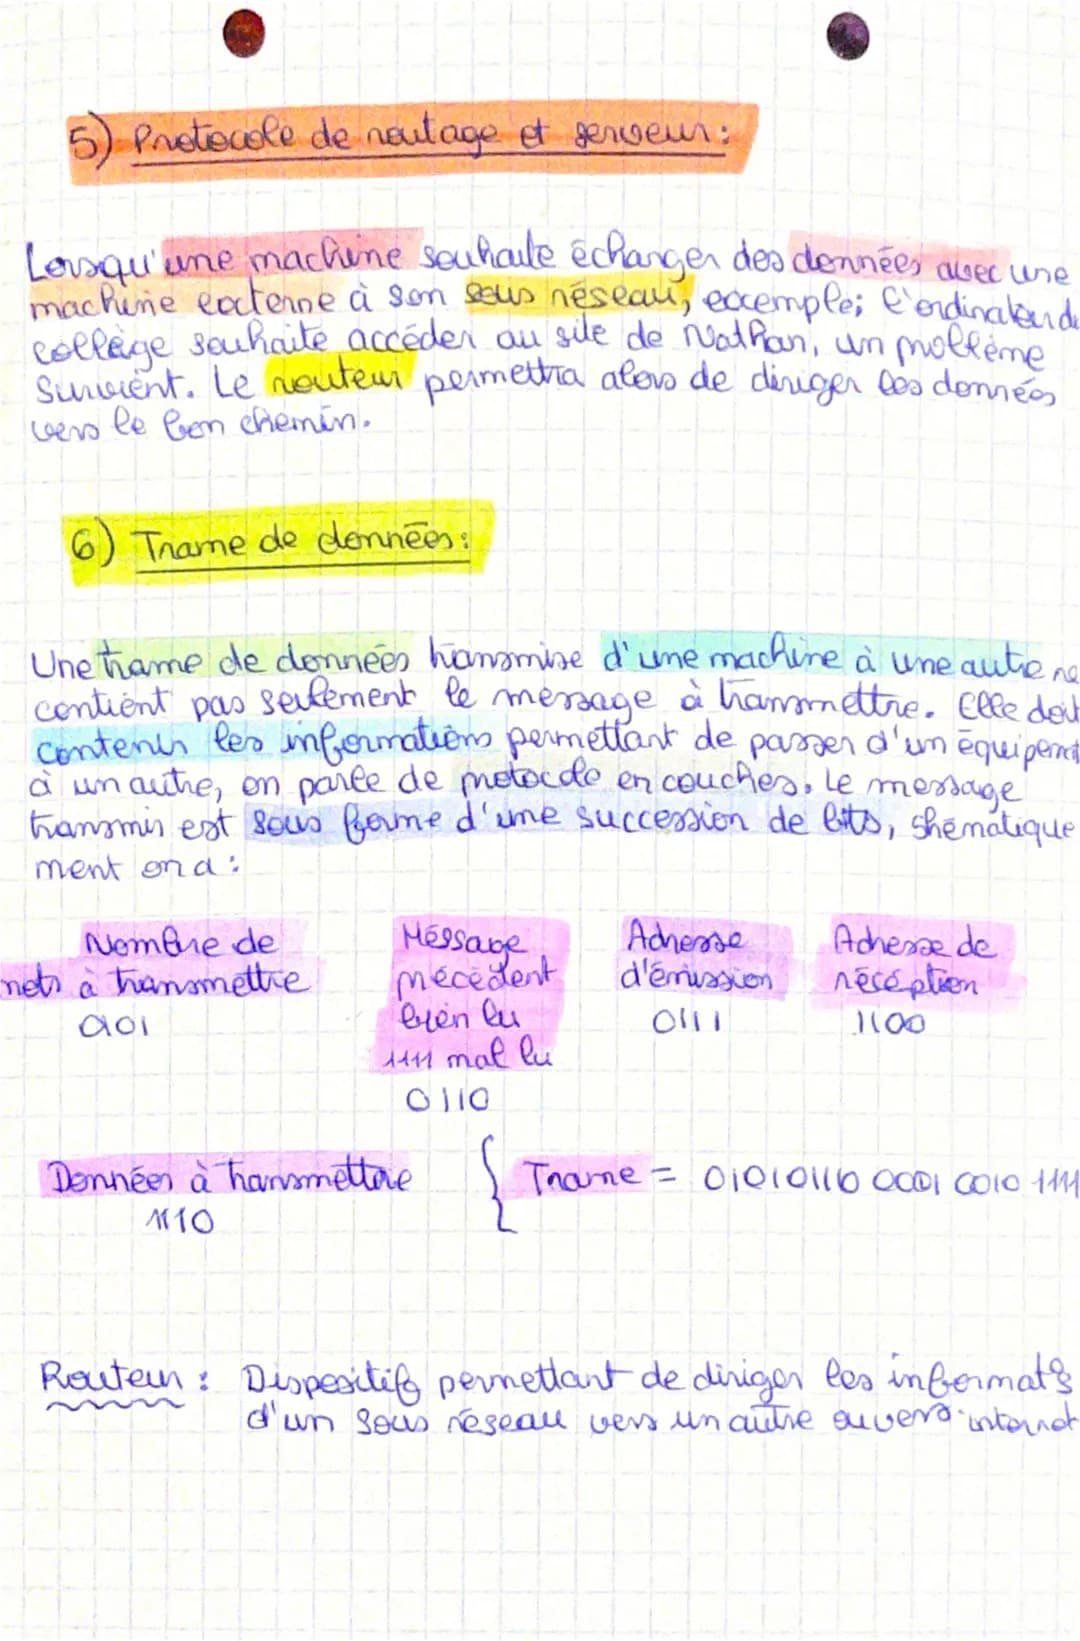 5) Protocole de routage et serveur :
Lorsqu'une machine souhaite échanger des données avec une
machine externe à son sous réseau, excemple; l'ordinateur du
collège souhaite accéder au site de Nathan, un problème
survient. Le routeur permettra alors de diriger les données
vers le bon chemin.
6) Trame de données :
Une trame de données transmise d'une machine à une autre ne
contient pas seulement le message à transmettre. Elle doit
contenir les informations permettant de passer d'un équipement
à un autre, on parle de protocole en couches. Le message
transmis est sous forme d'une succession de bits, shématique
ment on a :
Nombre de Méssage Adresse Adresse de
mots à transmettre précédent d'émission réception
0101 bien lu 0111 1100
1111 mal lu
0110
Données à transmettre { Trame = 01010110 0001 0010 1111
1110
Routeur : Dispositif permettant de diriger les informat°s
d'un sous réseau vers un autre ou vers internet